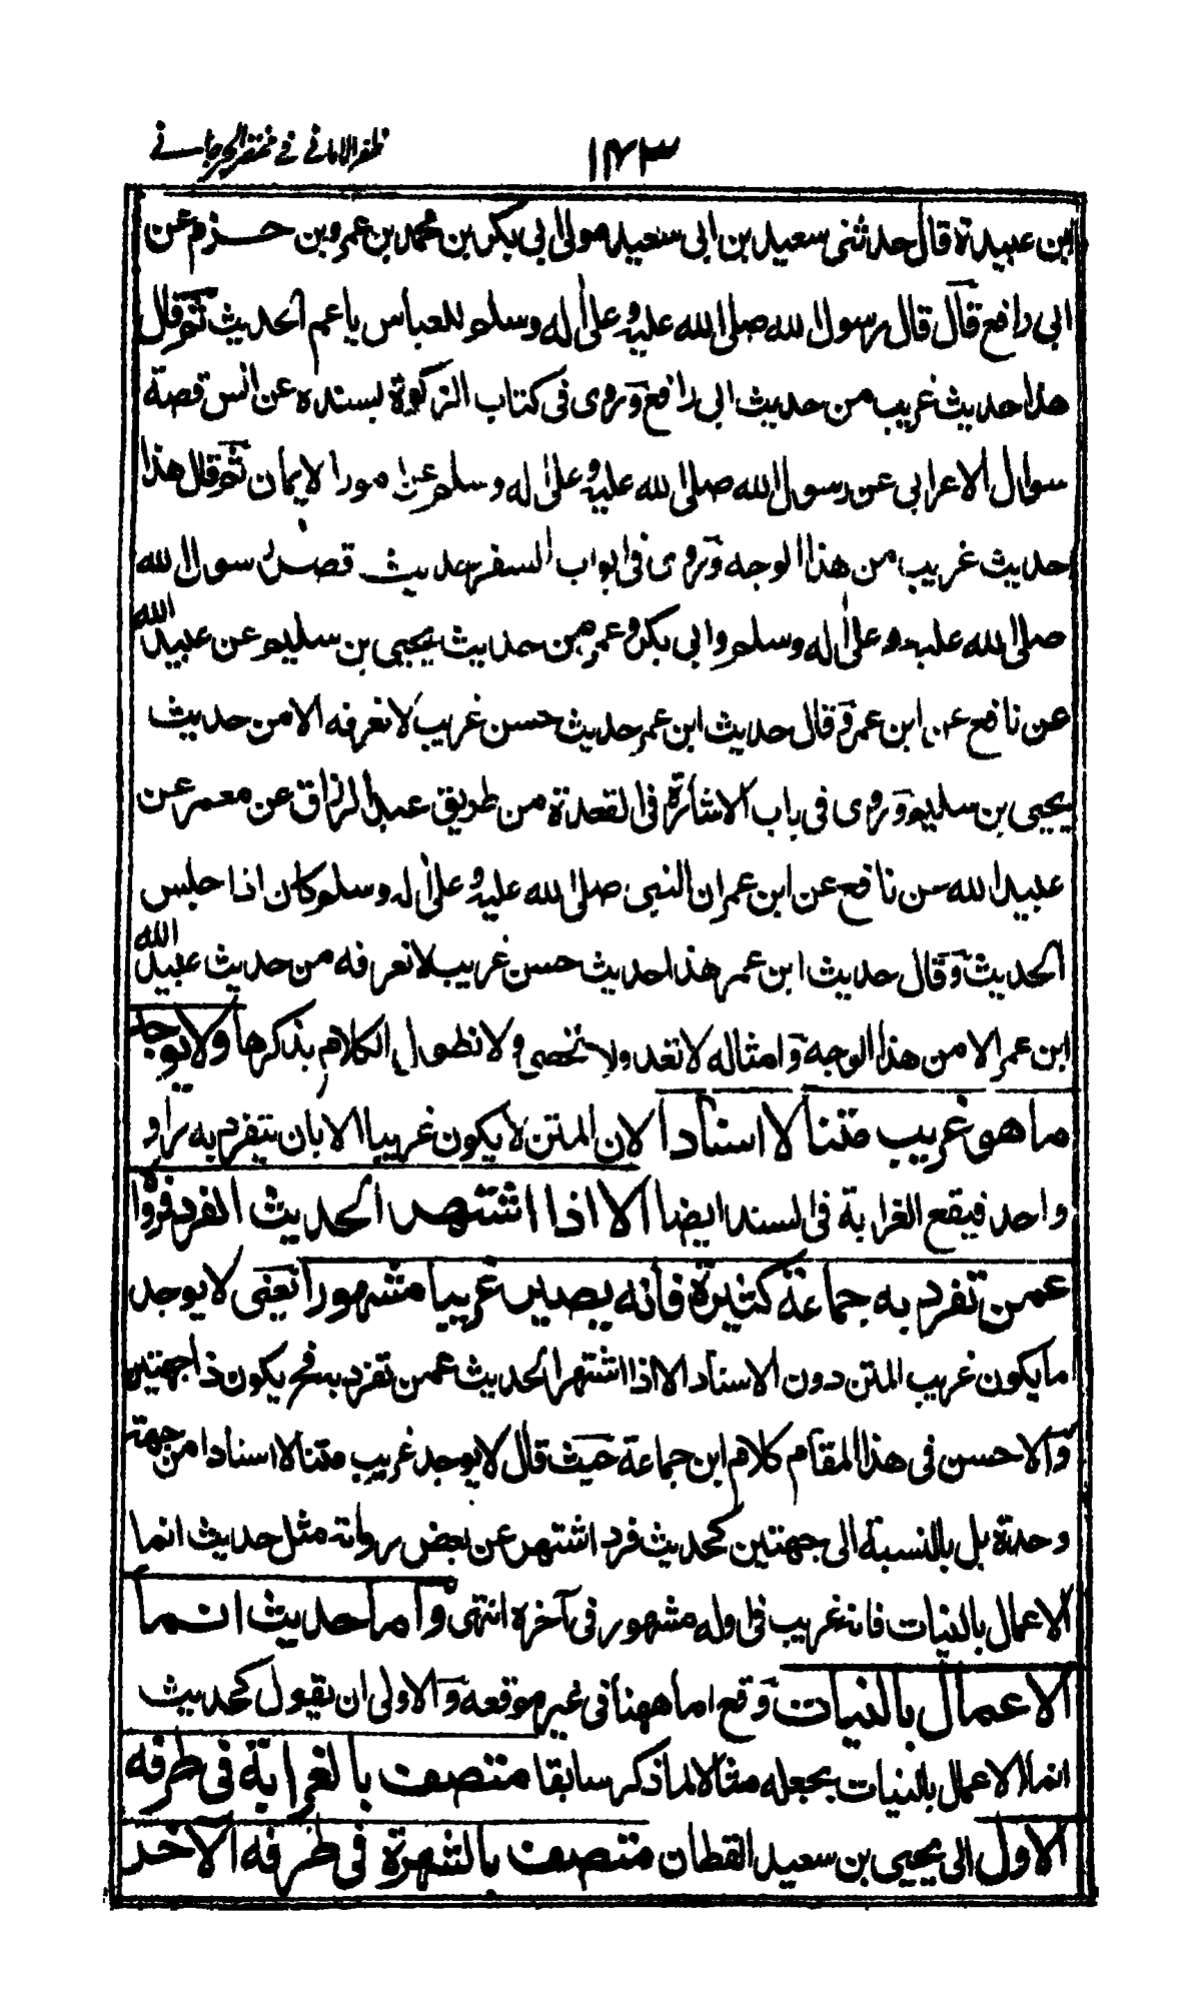 ١٤٣ ظفر الامانی فی مختصر الجرجانی
ابن عبيدة قال حدثنى سعيد بن ابى سعيد مولى ابى بكر بن محمد بن عمرو بن حزم عن
ابى رافع قال قال رسول الله صلى الله عليه وعلى اله وسلم للعباس ياعم الحديث ثم قال
هذا حديث غريب من حديث ابى رافع وروى فى كتاب الزكوة بسنده عن انس قصة
سوال الاعرابى عن رسول الله صلى الله عليه وعلى اله وسلم عن امور الايمان ثم قال هذا
حديث غريب من هذا الوجه وروى فى ابواب السفر حديث قصر رسول الله
صلى الله عليه وعلى اله وسلم وابى بكر وعمر من حديث يحيى بن سليم عن عبيد الله
عن نافع عن ابن عمر وقال حديث ابن عمر حديث حسن غريب لا نعرفه الا من حديث
يحيى بن سليم وروى فى باب الاشارة فى القعدة من طريق عبد الرزاق عن معمر عن
عبيد الله عن نافع عن ابن عمر ان النبى صلى الله عليه وعلى اله وسلم كان اذا جلس
الحديث وقال حديث ابن عمر هذا حديث حسن غريب لا نعرفه من حديث عبيد الله
ابن عمر الا من هذا الوجه وامثاله لا تعد ولا تحصى ولا نطول الكلام بذكرها ولا يوجد
ما هو غريب متنا لا اسنادا لان المتن لا يكون غريبا الا بان يتفرد به راو
واحد فيقع الغرابة فى السند ايضا الا اذا اشتهر الحديث الفرد فرواه
عمن تفرد به جماعة كثيرة فانه يصير غريبا مشهورا يعنى لا يوجد
ما يكون غريب المتن دون الاسناد الا اذا اشتهر الحديث عمن تفرد به فح يكون ذا جهتين
والاحسن فى هذا المقام كلام ابن جماعة حيث قال لا يوجد غريب متنا لا اسنادا من جهة
وحدة بل بالنسبة الى جهتين كحديث فرد اشتهر عن بعض رواته مثل حديث انما
الاعمال بالنيات فانه غريب فى اوله مشهور فى آخره انتهى واما حديث انما
الاعمال بالنيات وقع اما ههنا فى غير موقعه والاولى ان يقول كحديث
انما الاعمال بالنيات بجعله مثالا لما ذكر سابقا متصف بالغرابة فى طرفه
الاول الى يحيى بن سعيد القطان متصف بالشهرة فى طرفه الآخر